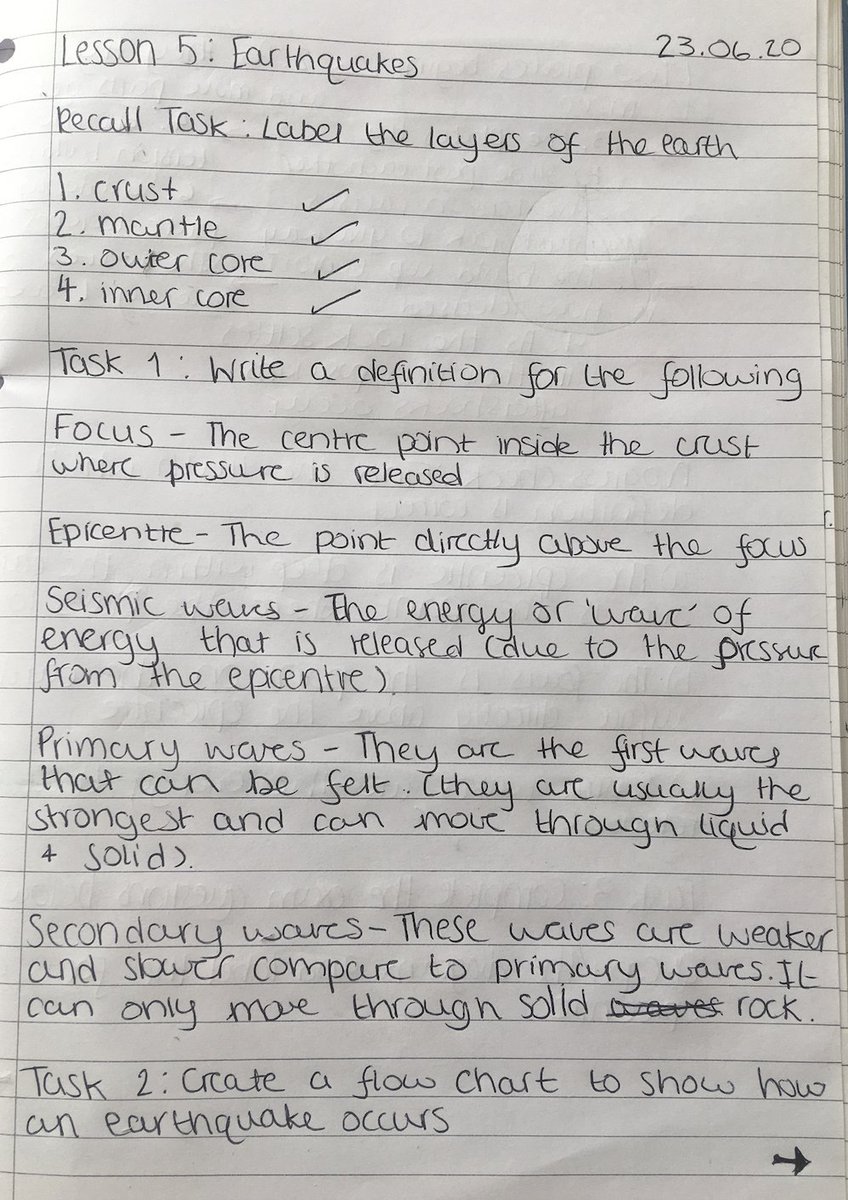 Lesson 5: Earthquakes 23.06.20
Recall Task: Label the layers of the earth
1. crust ✓
2. mantle ✓
3. outer core ✓
4. inner core ✓
Task 1: Write a definition for the following
Focus - The centre point inside the crust
where pressure is released
Epicentre - The point directly above the focus
Seismic waves - The energy or 'wave' of
energy that is released (due to the pressure
from the epicentre).
Primary waves - They are the first waves
that can be felt. (they are usually the
strongest and can move through liquid
+ solid).
Secondary waves - These waves are weaker
and slower compare to primary waves. It
can only move through solid waves rock.
Task 2: Create a flow chart to show how
an earthquake occurs
→